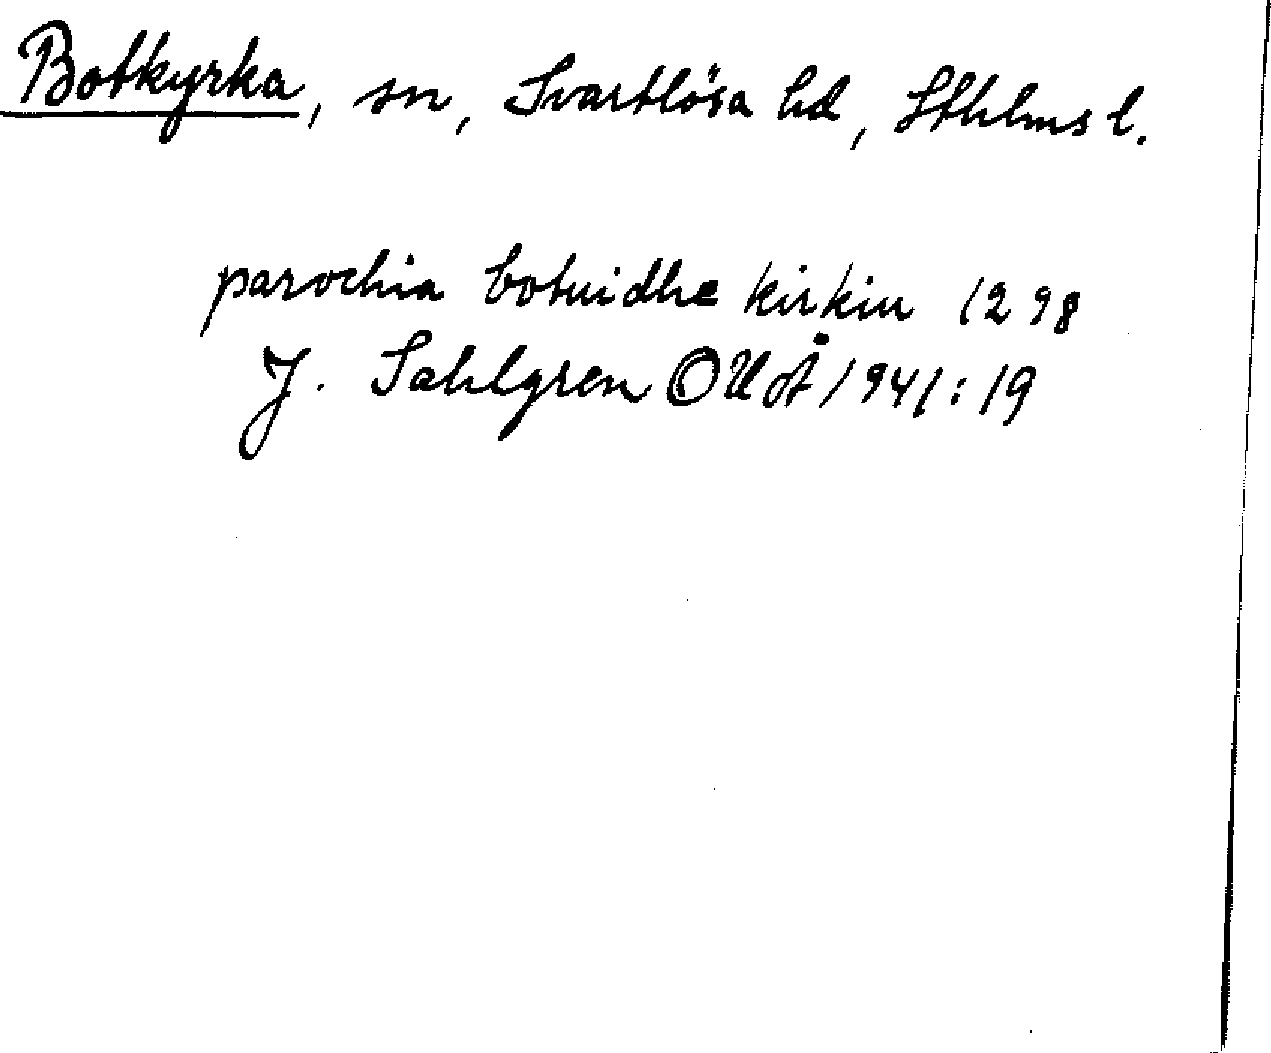 Botkyrka, sn, Svartlösa hd, Sthlms l.
parochia botuidhe kirkiu 1298
J. Sahlgren OUÅ 1941: 19